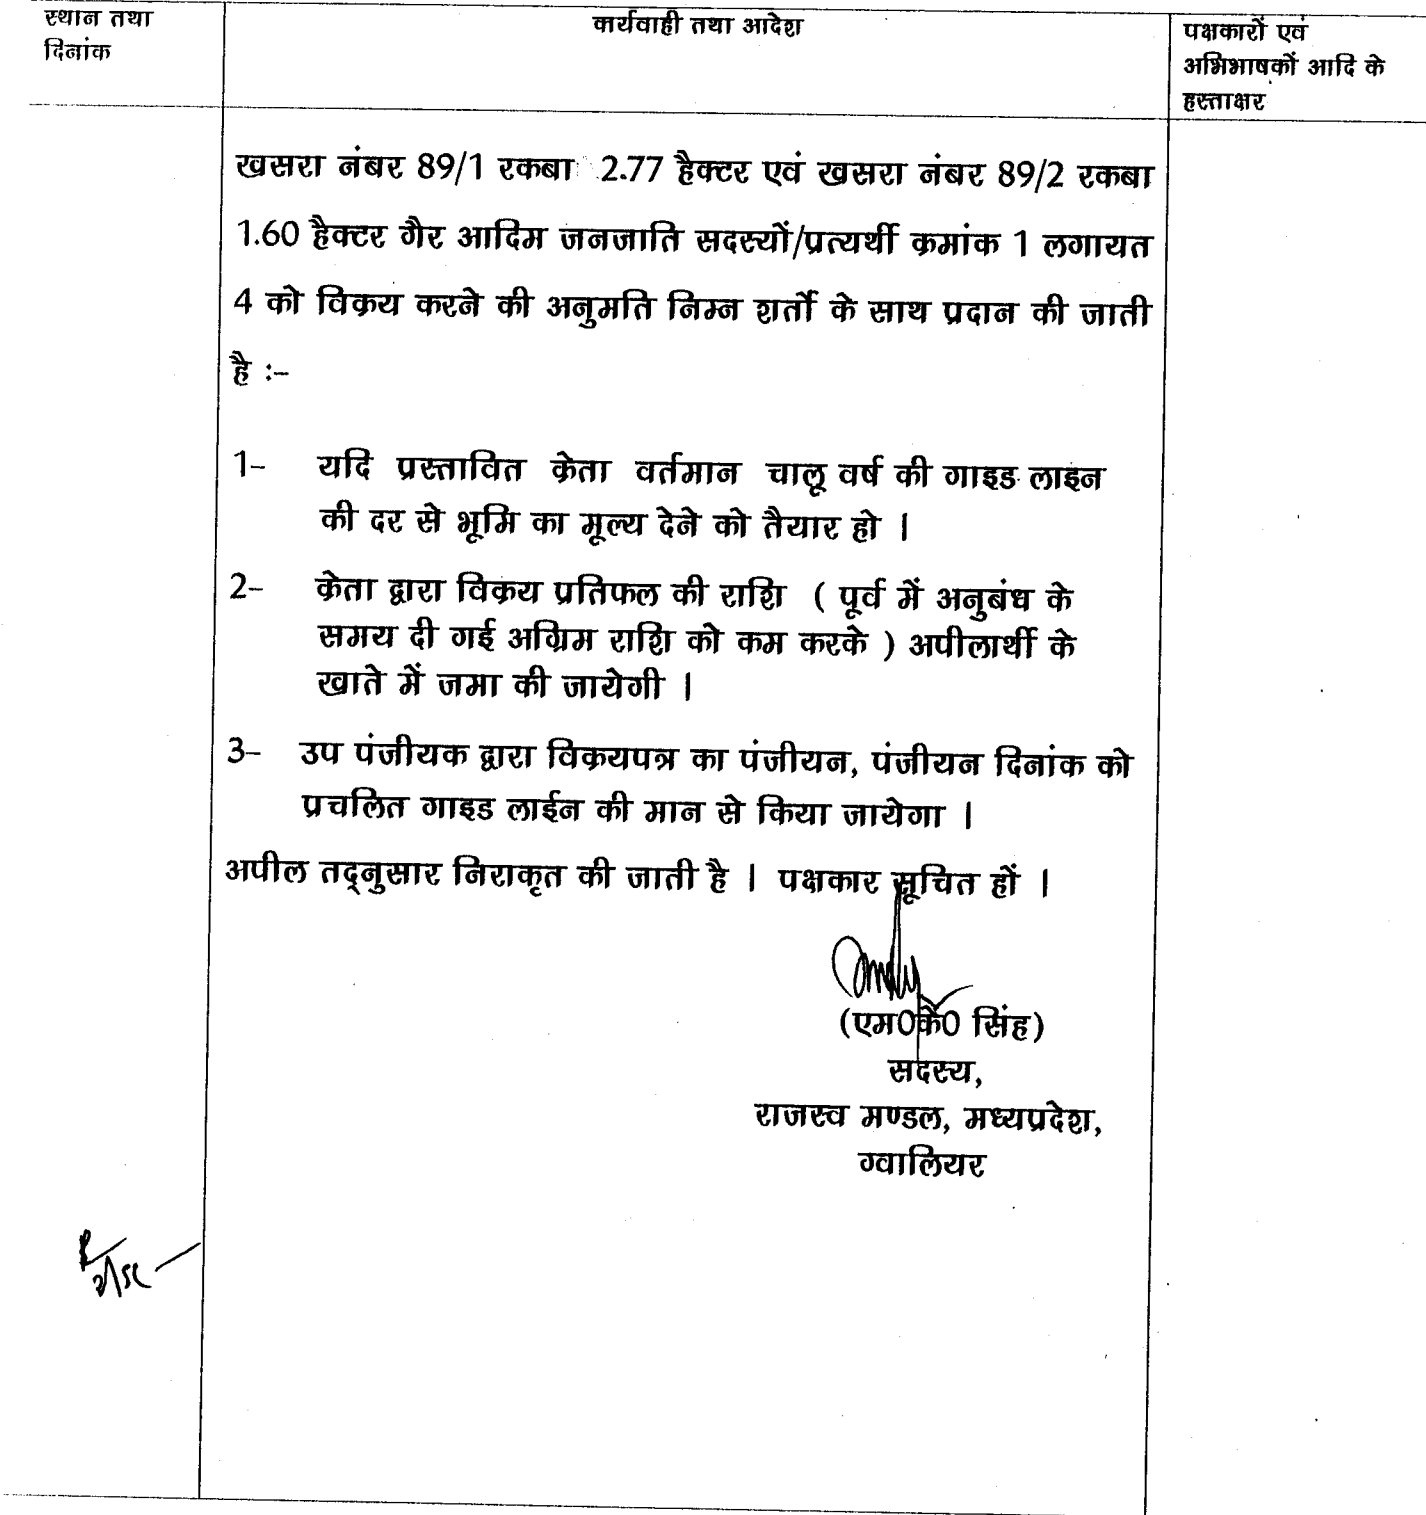 स्थान तथा
दिनांक
कार्यवाही तथा आदेश
पक्षकारों एवं
अभिभाषकों आदि के
हस्ताक्षर
खसरा नंबर 89/1 रकबा 2.77 हैक्टर एवं खसरा नंबर 89/2 रकबा
1.60 हैक्टर गैर आदिम जनजाति सदस्यों/प्रत्यर्थी क्रमांक 1 लगायत
4 को विक्रय करने की अनुमति निम्न शर्तो के साथ प्रदान की जाती
है :–
1– यदि प्रस्तावित क्रेता वर्तमान चालू वर्ष की गाइड लाइन
की दर से भूमि का मूल्य देने को तैयार हो ।
2– क्रेता द्वारा विक्रय प्रतिफल की राशि ( पूर्व में अनुबंध के
समय दी गई अग्रिम राशि को कम करके ) अपीलार्थी के
खाते में जमा की जायेगी ।
3– उप पंजीयक द्वारा विक्रयपत्र का पंजीयन, पंजीयन दिनांक को
प्रचलित गाइड लाईन की मान से किया जायेगा ।
अपील तद्नुसार निराकृत की जाती है । पक्षकार सूचित हों ।
(एम0के0 सिंह)
सदस्य,
राजस्व मण्डल, मध्यप्रदेश,
ग्वालियर